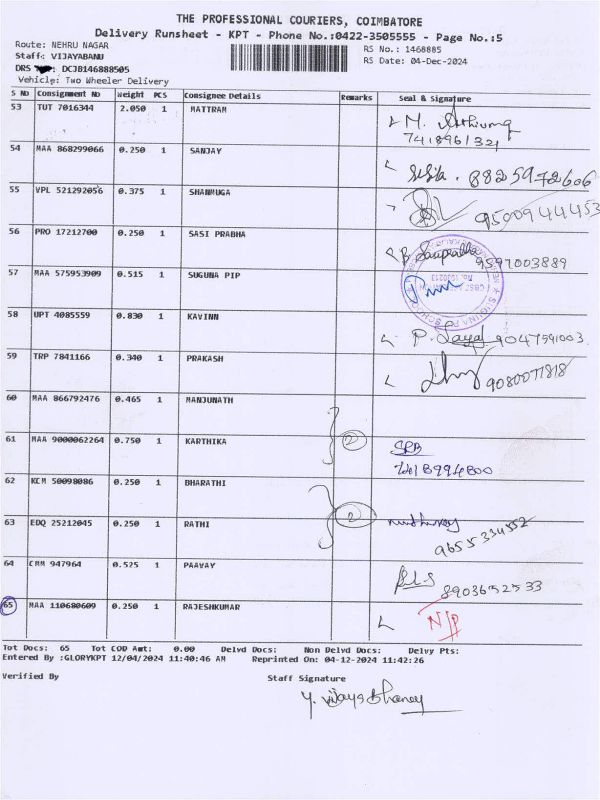 THE PROFESSIONAL COURIERS, COIMBATORE
Delivery Runsheet - KPT - Phone No.:0422-3505555 - Page No.:5
Route: NEHRU NAGAR
RS No.: 1468885
Staff: VIJAYABANU
RS Date: 04-Dec-2024
DRS DCJB146888505
Vehicle: Two Wheeler Delivery
S No Consignment No Weight PCS Consignee Details Remarks Seal & Signature
53 TUT 7016344 2.050 1 MATTRAM
7418961321
54 MAA 868299066 0.250 1 SANJAY
8825972606
55 VPL 521292056 0.375 1 SHANMUGA
9500944453
56 PRO 17212700 0.250 1 SASI PRABHA
9597003889
57 MAA 575953909 0.515 1 SUGUNA PIP
58 UPT 4085559 0.830 1 KAVINN
P. Jayal 9047591003
59 TRP 7841166 0.340 1 PRAKASH
9080071818
60 MAA 866792476 0.465 1 MANJUNATH
61 MAA 9000062264 0.750 1 KARTHIKA 2 SRB
62 KCM 50098086 0.250 1 BHARATHI
63 EDQ 25212045 0.250 1 RATHI 2
9655334552
64 CMM 947964 0.525 1 PAAVAY
8903652533
65 MAA 110680609 0.250 1 RAJESHKUMAR N/P
Tot Docs: 65 Tot COD Amt: 0.00 Delvd Docs: Non Delvd Docs: Delvy Pts:
Entered By :GLORYKPT 12/04/2024 11:40:46 AM Reprinted On: 04-12-2024 11:42:26
Verified By Staff Signature